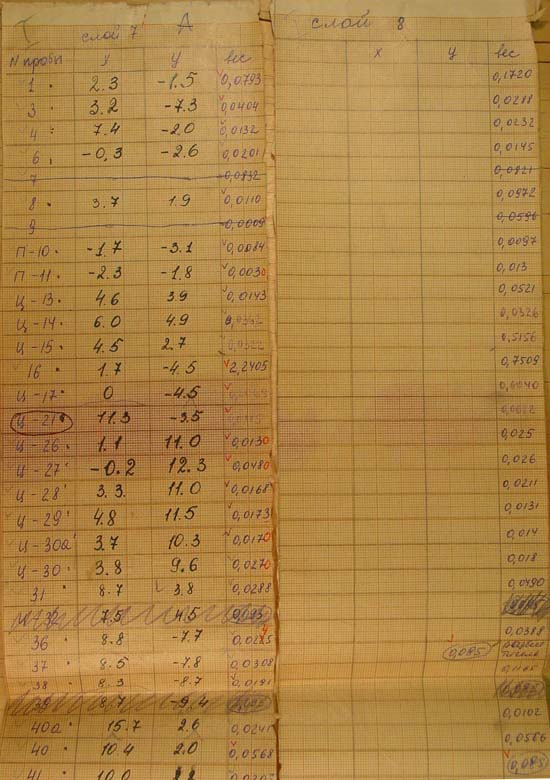 I слой 7 А слой 8
N пробы х у вес х у вес
1 2.3 -1.5 0,0793 0,1720
3 3.2 -7.3 0,0404 0,0288
4 7.4 -2.0 0,0132 0,0232
6 -0,3 -2.6 0,0201 0,0145
7 0,0832 0,0821
8 3.7 1.9 0,0110 0,0972
9 0,0009 0,0596
П-10 -1.7 -3.1 0,0084 0,0097
П-11 -2.3 -1.8 0,0030 0,013
Ц-13 4.6 3.9 0,0143 0,0521
Ц-14 6.0 4.9 0,0326
Ц-15 4.5 2.7 0,5156
16 1.7 -4.5 2,2405 0,7509
Ц-17 0 -4.5
Ц-21 11.3 -3.5
Ц-26 1.1 11.0 0,0130 0,025
Ц-27 -0.2 12.3 0,0480 0,026
Ц-28 3.3 11.0 0,0168 0,0211
Ц-29 4.8 11.5 0,0173 0,0131
Ц-30а 3.7 10.3 0,0170 0,014
Ц-30 3.8 9.6 0,0270 0,018
31 8.7 3.8 0,0288 0,0490
7.5 4.5
36 8.8 -7.7 0,0388
37 8.5 -7.8 0,0308 0,085
38 8.3 -8.7 0,0191
39 8.7 -9.4
40а 15.7 2.6 0,0241 0,0102
40 10.4 2.0 0,0568 0,0566
41 10.0 0,085